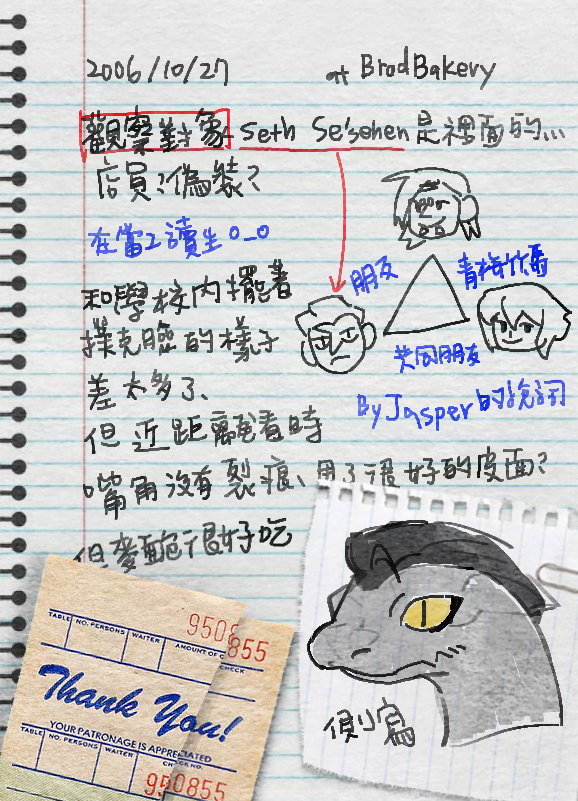 2006/10/27 at BrodBakery
觀察對象 Seth Se'sehen 是裡面的...
店員?偽裝?
在當工讀生0_0
和學校內擺著
撲克臉的樣子
差太多了、
但近距離看時
嘴角沒有裂痕、用了很好的皮面?
但麥麵包很好吃
朋友
青梅竹馬
共同朋友
By Jasper的說詞
側寫
TABLE NO. PERSONS WAITER AMOUNT OF CHECK
9508
855
Thank You!
YOUR PATRONAGE IS APPRECIATED
TABLE NO. PERSONS WAITER CHECK NO.
950855